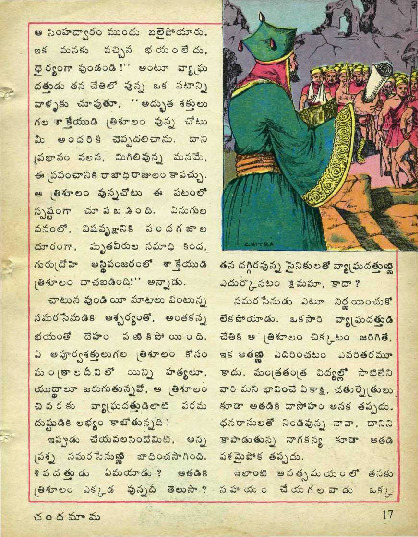 ఆ సింహద్వారం ముందు బలైపోయారు.
ఇక మనకు వచ్చిన భయంలేదు,
ధైర్యంగా వుండండి!" అంటూ వ్యాఘ్ర
దత్తుడు తన చేతిలో వున్న ఒక పటాన్ని
వాళ్ళకు చూపుతూ, "అద్భుత శక్తులు
గల శాక్తేయుడి త్రిశూలం వున్న చోటు
మీ అందరికీ చెప్పదలిచాను. దాని
ప్రభావం వలన, మిగిలివున్న మనమే,
ఈ ప్రపంచానికి రాజాధిరాజులం కావచ్చు.
ఆ త్రిశూలం వున్నచోటు ఈ పటంలో
స్పష్టంగా చూపబడింది. ఏనుగుల
వనంలో, విషవృక్షానికి పందగజాల
దూరంగా, మృతవీరుల సమాధి కింద,
గురుద్రోహి అస్థిపంజరంలో శాక్తేయుడి
త్రిశూలం దాచబడింది!" అన్నాడు.
చాటున వుండి యీ మాటలు వింటున్న
సమరసేనుడికి ఆశ్చర్యంతో, అంతకన్న
భయంతో దేహం పణికిపోయింది.
ఏ అపూర్వశక్తులుగల త్రిశూలం కోసం
మంత్రాలదీవిలో యిన్ని హత్యలూ,
యుద్ధాలూ జరుగుతున్నవో, ఆ త్రిశూలం
చివరకు వ్యాఘ్రదత్తుడిలాటి పరమ
దుష్టుడికి లభ్యం కాబోతున్నది!
ఇప్పుడు చేయవలసిందేమిటి, అన్న
ప్రశ్న సమరసేనుణ్ణి బాధించసాగింది.
శివదత్తుడు ఏమయాడు? అతడికి
త్రిశూలం ఎక్కడ వున్నదీ తెలుసా?
తన దగ్గిరవున్న సైనికులతో వ్యాఘ్రదత్తుణ్ణి
ఎదుర్కొనటం క్షేమమా, కాదా?
సమరసేనుడు ఎటూ నిర్ణయించుకో
లేకపోయాడు. ఒకసారి వ్యాఘ్రదత్తుడి
చేతికి ఆ త్రిశూలం చిక్కటం జరిగితే,
ఇక అతణ్ణి ఎదిరించటం ఎవరితరమూ
కాదు. మంత్రతంత్ర విద్యల్లో సాటిలేని
వారి మని భావించే ఏకాక్షి, చతుర్నేత్రులు
కూడా అతడికి దాసోహం అనక తప్పదు.
ధనరాసులతో నిండివున్న నావా, దానిని
కాపాడుతున్న నాగకన్య కూడా అతడి
వశమైపోక తప్పదు.
ఇలాంటి ఆపత్సమయంలో తనకు
సహాయం చేయగలవాడు ఒక్క
చందమామ
17